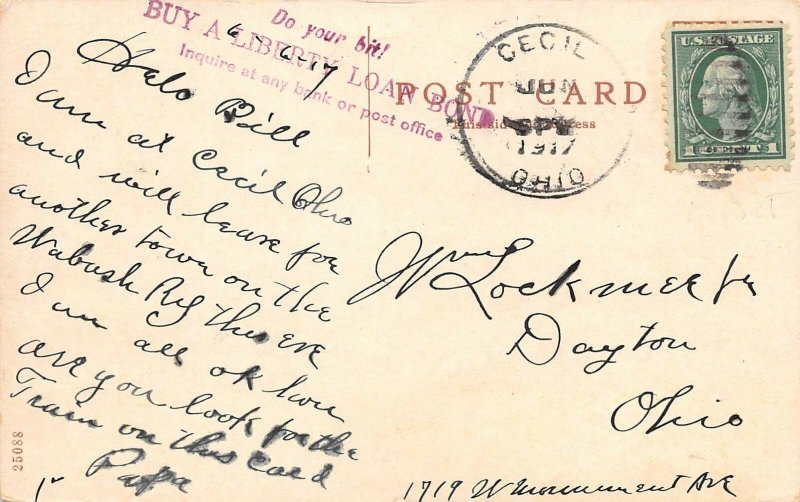 Do your bit!
BUY A LIBERTY LOAN BOND
Inquire at any bank or post office
6-6-17
Helo Bill
I am at Cecil Ohio
and will leave for
another town on the
Wabash Ry this eve
I am all ok how
are you look for the
Train on this Card
Papa
25088
POST CARD
This side address
CECIL
JUN
1917
OHIO
U.S. POSTAGE
1 CENT 1
Wm Lockmer Jr
Dayton
Ohio
1719 W monument Ave